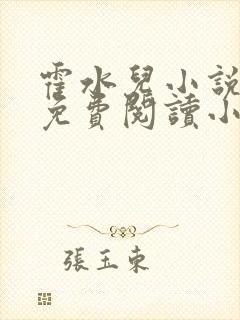 霍水兒小說
免費閱讀小
張玉東